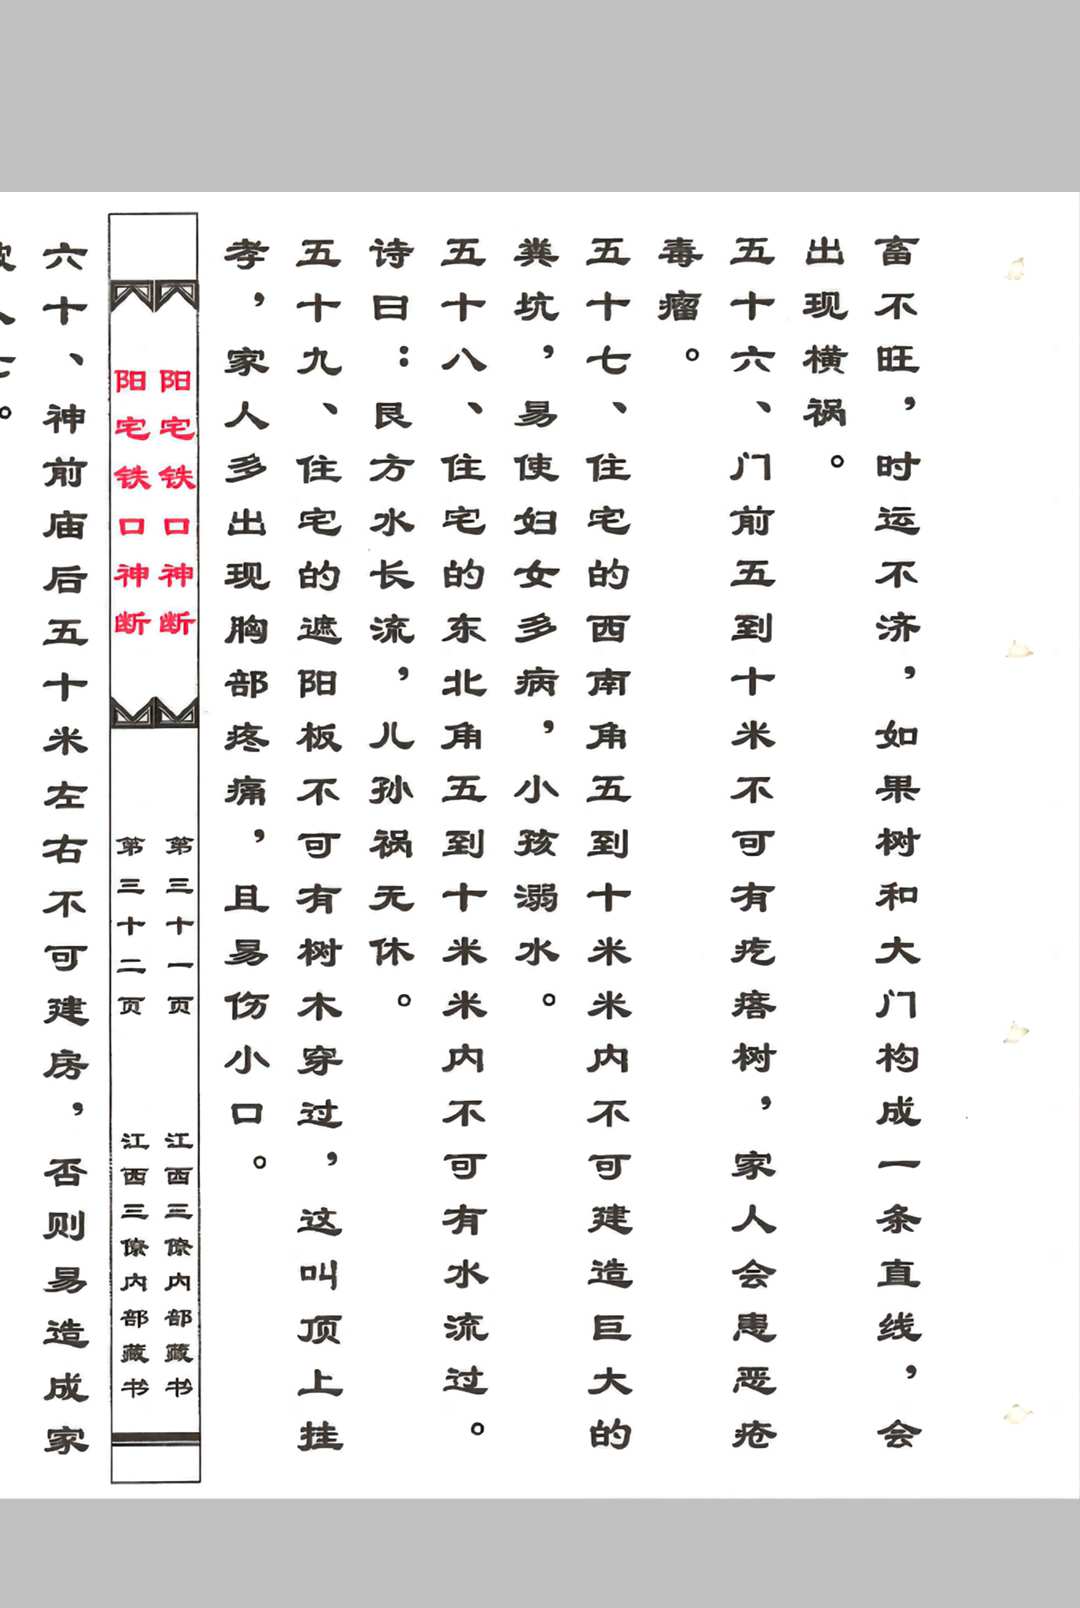 畜不旺，时运不济，如果树和大门构成一条直线，会
出现横祸。
五十六、门前五到十米不可有疙瘩树，家人会患恶疮
毒瘤。
五十七、住宅的西南角五到十米米内不可建造巨大的
粪坑，易使妇女多病，小孩溺水。
五十八、住宅的东北角五到十米米内不可有水流过。
诗曰：艮方水长流，儿孙祸无休。
五十九、住宅的遮阳板不可有树木穿过，这叫顶上挂
孝，家人多出现胸部疼痛，且易伤小口。
阳宅铁口神断
第三十一页
江西三僚内部藏书
阳宅铁口神断
第三十二页
江西三僚内部藏书
六十、神前庙后五十米左右不可建房，否则易造成家